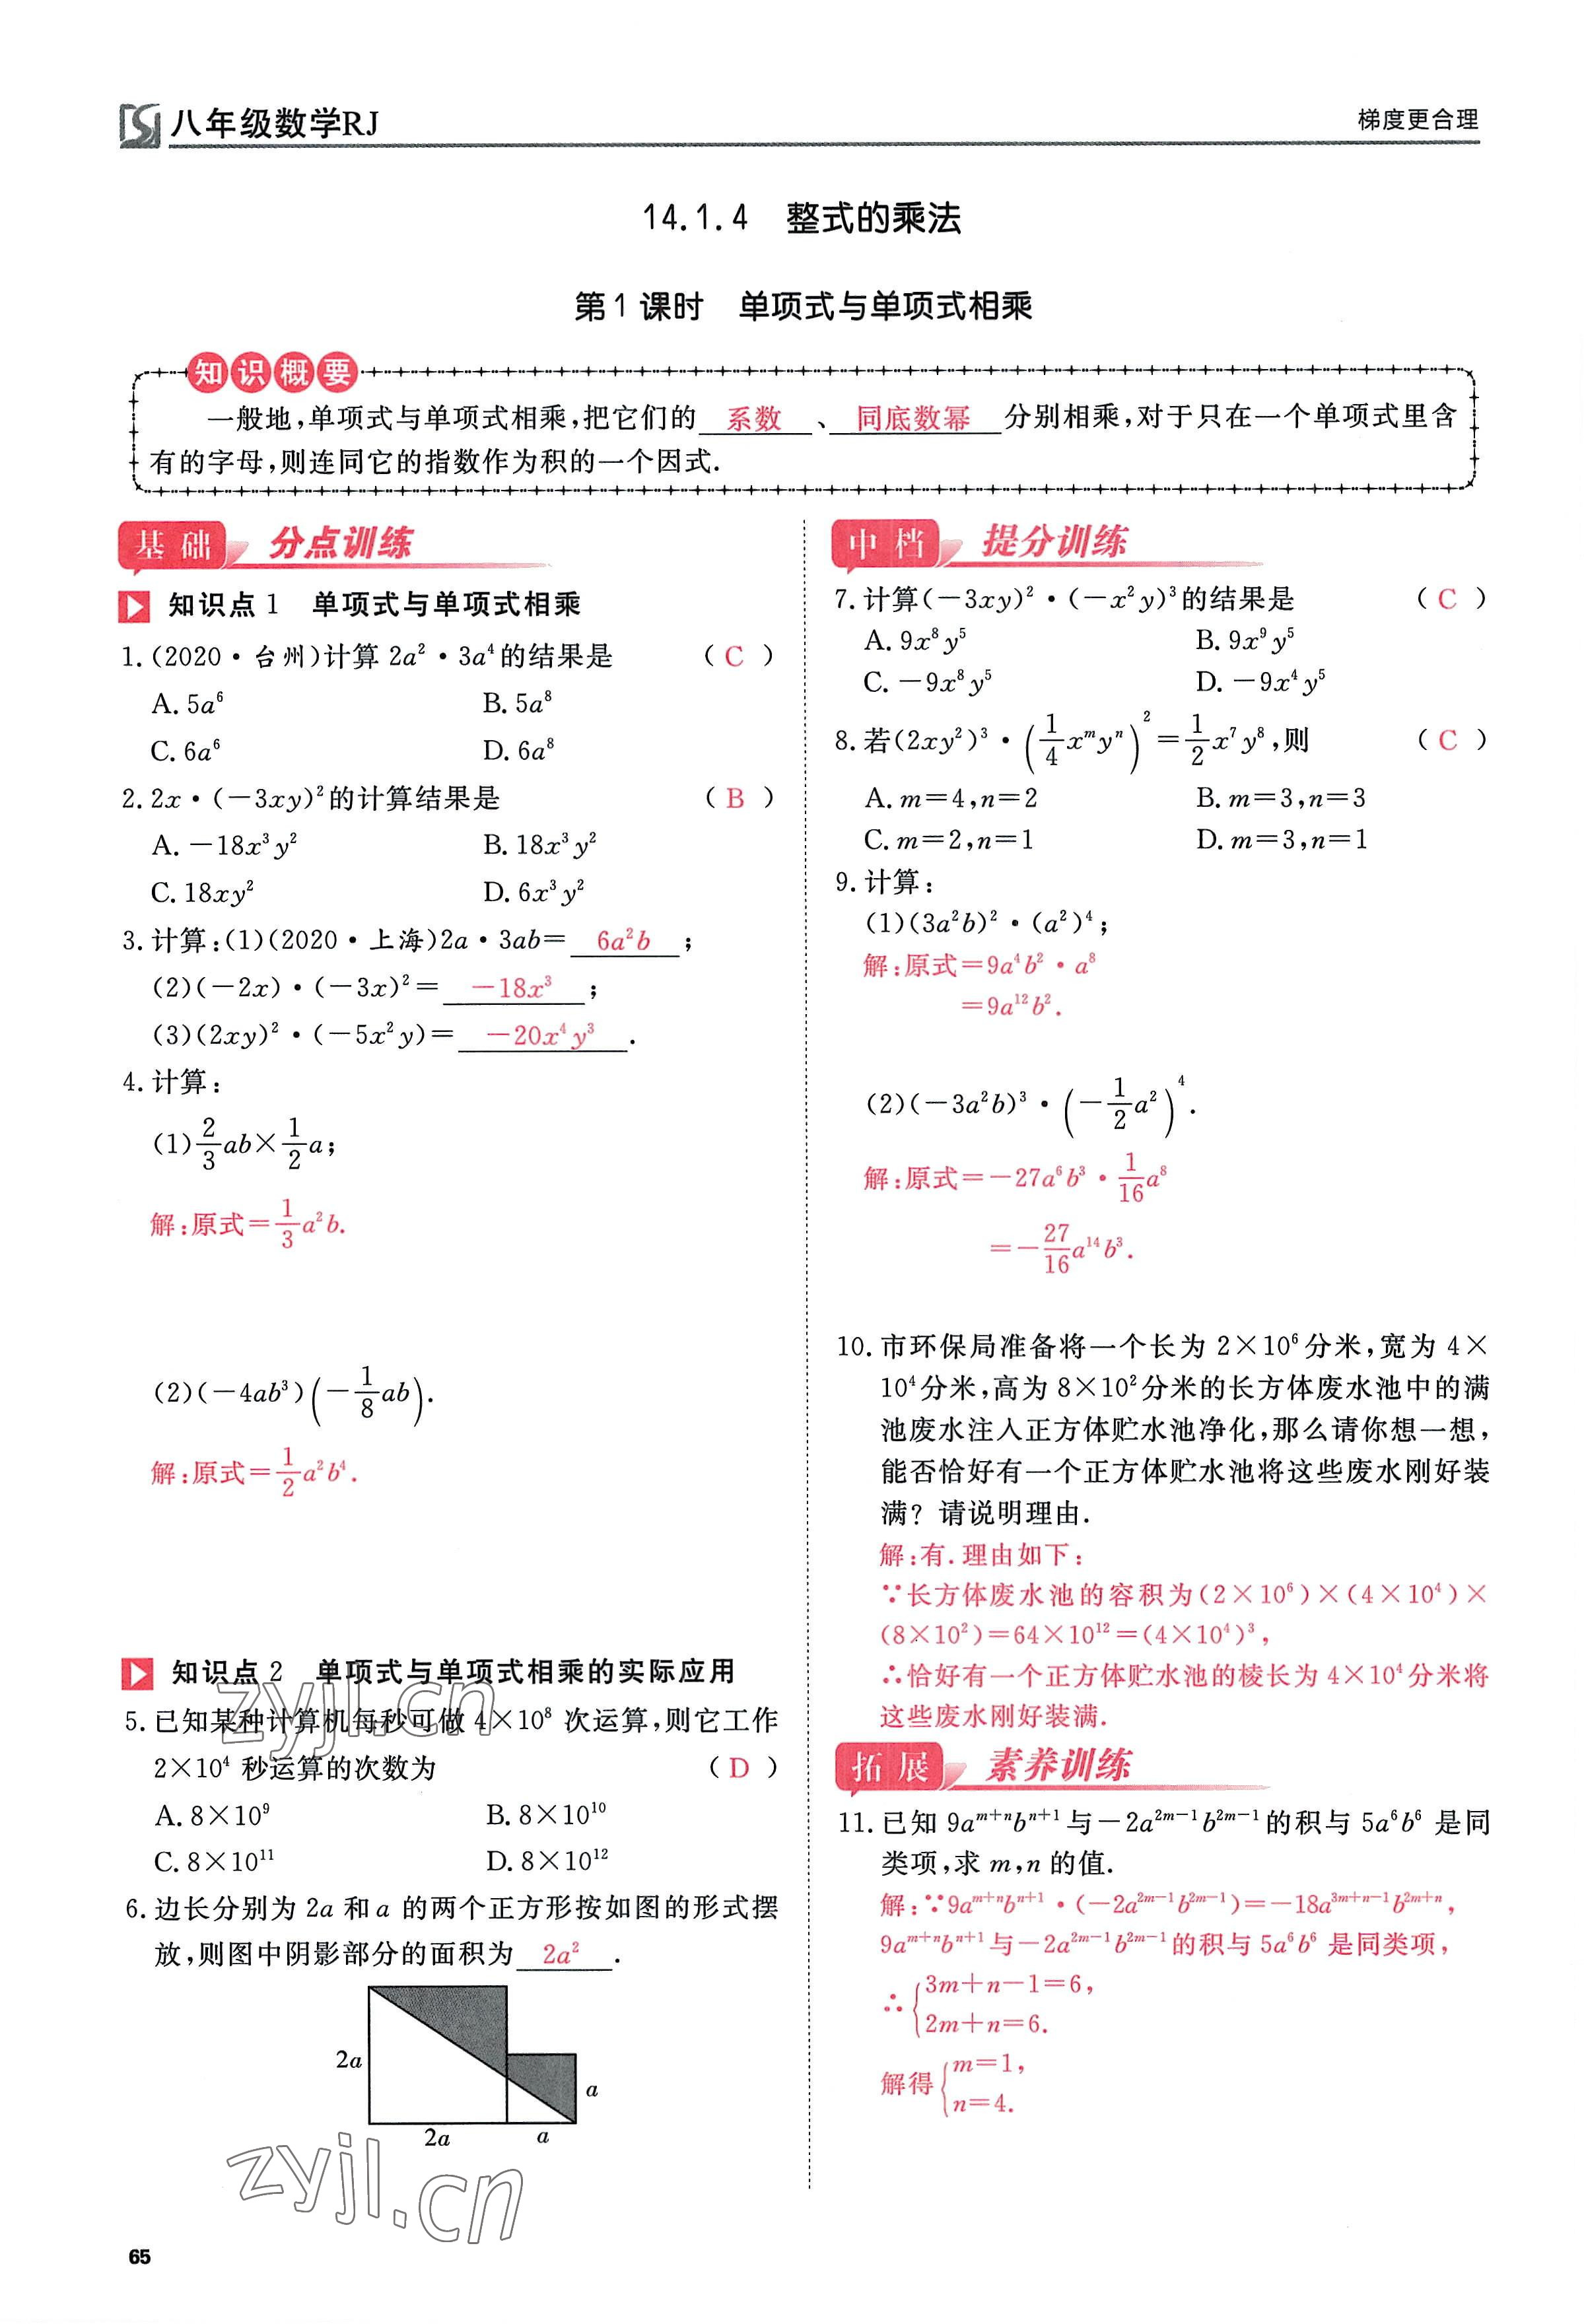 八年级数学RJ
梯度更合理
14.1.4 整式的乘法
第1课时 单项式与单项式相乘
知识概要
一般地,单项式与单项式相乘,把它们的 系数 、 同底数幂 分别相乘,对于只在一个单项式里含
有的字母,则连同它的指数作为积的一个因式.
基础 分点训练
知识点1 单项式与单项式相乘
1.(2020·台州)计算 2a²·3a⁴的结果是 ( C )
A.5a⁶ B.5a⁸
C.6a⁶ D.6a⁸
2.2x·(-3xy)²的计算结果是 ( B )
A.-18x³y² B.18x³y²
C.18xy² D.6x³y²
3.计算:(1)(2020·上海)2a·3ab= 6a²b ;
(2)(-2x)·(-3x)²= -18x³ ;
(3)(2xy)²·(-5x²y)= -20x⁴y³ .
4.计算:
(1)2/3ab×1/2a;
解:原式=1/3a²b.
(2)(-4ab³)(-1/8ab).
解:原式=1/2a²b⁴.
知识点2 单项式与单项式相乘的实际应用
5.已知某种计算机每秒可做 4×10⁸ 次运算,则它工作
2×10⁴ 秒运算的次数为 ( D )
A.8×10⁹ B.8×10¹⁰
C.8×10¹¹ D.8×10¹²
6.边长分别为 2a 和 a 的两个正方形按如图的形式摆
放,则图中阴影部分的面积为 2a² .
2a
a
2a a
中档 提分训练
7.计算(-3xy)²·(-x²y)³的结果是 ( C )
A.9x⁸y⁵ B.9x⁹y⁵
C.-9x⁸y⁵ D.-9x⁴y⁵
8.若(2xy²)³·(1/4xᵐyⁿ)²=1/2x⁷y⁸,则 ( C )
A.m=4,n=2 B.m=3,n=3
C.m=2,n=1 D.m=3,n=1
9.计算:
(1)(3a²b)²·(a²)⁴;
解:原式=9a⁴b²·a⁸
=9a¹²b².
(2)(-3a²b)³·(-1/2a²)⁴.
解:原式=-27a⁶b³·1/16a⁸
=-27/16a¹⁴b³.
10.市环保局准备将一个长为 2×10⁶分米,宽为 4×
10⁴分米,高为 8×10²分米的长方体废水池中的满
池废水注入正方体贮水池净化,那么请你想一想,
能否恰好有一个正方体贮水池将这些废水刚好装
满?请说明理由.
解:有.理由如下:
∵长方体废水池的容积为(2×10⁶)×(4×10⁴)×
(8×10²)=64×10¹²=(4×10⁴)³,
∴恰好有一个正方体贮水池的棱长为 4×10⁴分米将
这些废水刚好装满.
拓展 素养训练
11.已知 9aᵐ⁺ⁿbⁿ⁺¹与-2a²ᵐ⁻¹b²ᵐ⁻¹的积与 5a⁶b⁶ 是同
类项,求 m,n 的值.
解:∵9aᵐ⁺ⁿbⁿ⁺¹·(-2a²ᵐ⁻¹b²ᵐ⁻¹)=-18a³ᵐ⁺ⁿ⁻¹b²ᵐ⁺ⁿ,
9aᵐ⁺ⁿbⁿ⁺¹与-2a²ᵐ⁻¹b²ᵐ⁻¹的积与 5a⁶b⁶ 是同类项,
∴{3m+n-1=6,
2m+n=6.
解得{m=1,
n=4.
zyjl.cn
zyjl.cn
65